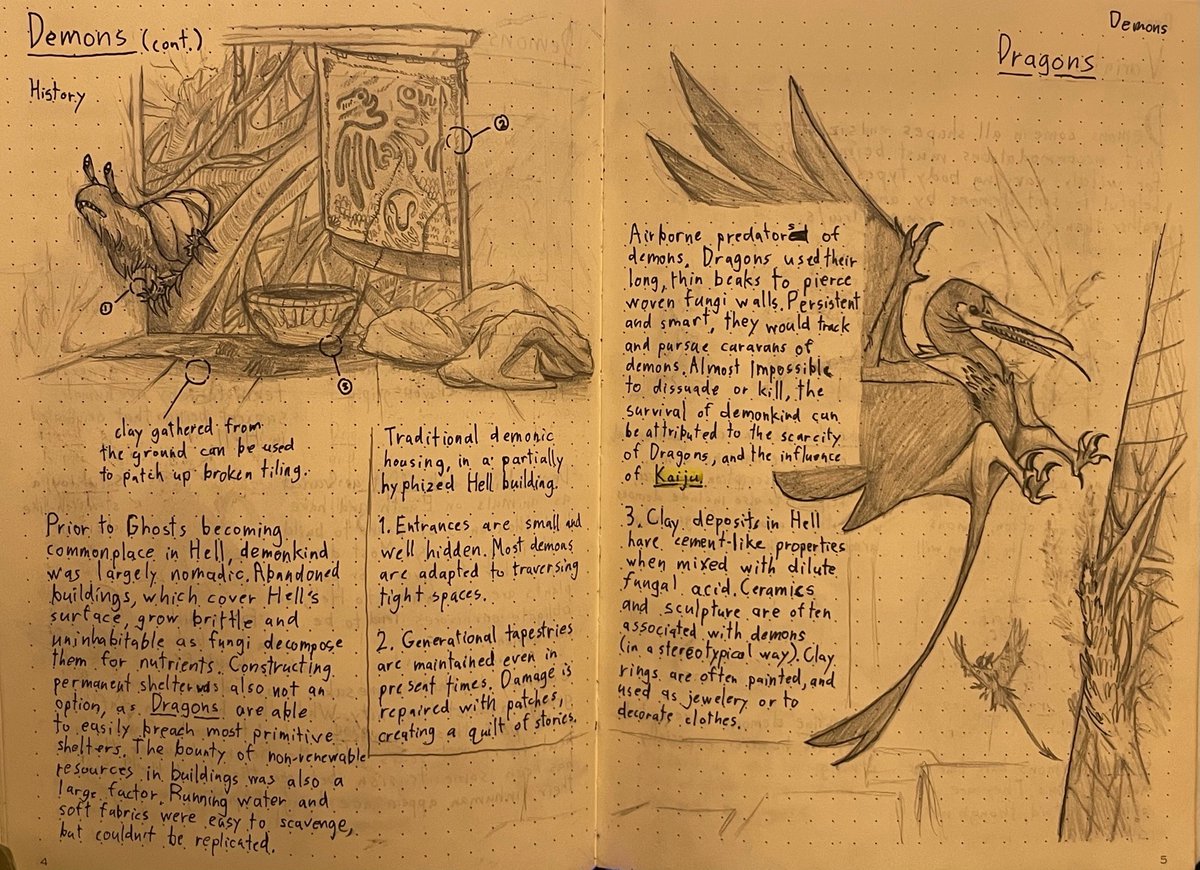 Demons (cont.)
History
①
②
③
clay gathered from
the ground can be used
to patch up broken tiling.
Prior to Ghosts becoming
commonplace in Hell, demonkind
was largely nomadic. Abandoned
buildings, which cover Hell's
surface, grow brittle and
uninhabitable as fungi decompose
them for nutrients. Constructing
permanent shelter was also not an
option, as Dragons are able
to easily breach most primitive
shelters. The bounty of non-renewable
resources in buildings was also a
large factor. Running water and
soft fabrics were easy to scavenge,
but couldn't be replicated.
Traditional demonic
housing, in a partially
hyphized Hell building.
1. Entrances are small and
well hidden. Most demons
are adapted to traversing
tight spaces.
2. Generational tapestries
are maintained even in
present times. Damage is
repaired with patches,
creating a quilt of stories.
4
Demons
Dragons
Airborne predators of
demons. Dragons used their
long, thin beaks to pierce
woven fungi walls. Persistent
and smart, they would track
and pursue caravans of
demons. Almost impossible
to dissuade or kill, the
survival of demonkind can
be attributed to the scarcity
of Dragons, and the influence
of Kaiju
3. Clay deposits in Hell
have cement-like properties
when mixed with dilute
fungal acid. Ceramics
and sculpture are often
associated with demons
(in a stereotypical way). Clay
rings are often painted, and
used as jewelery or to
decorate clothes.
5